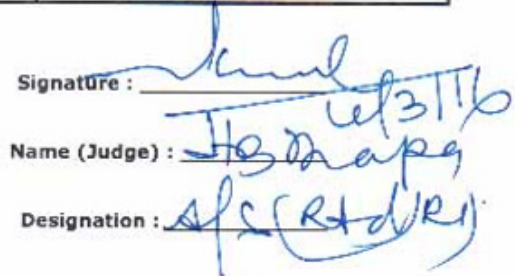 Signature :
4/3/16
Name (Judge) : HB Thapa
Designation : A/C (Rtd/RI)